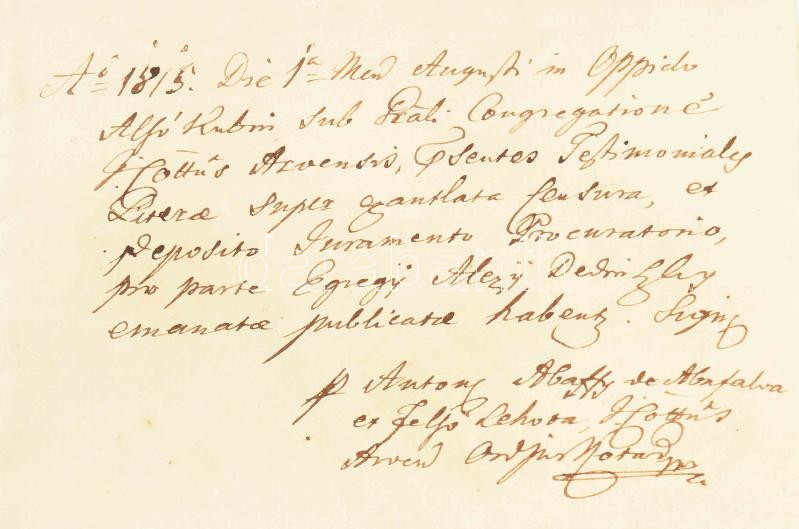 Aō 1815. Die 1a Men Augusti in Oppido
Alsó Kubin sub Grali Congregatione
I. Cottus Arvensis, Psentes Testimoniales
Literæ super exantlata Censura, et
deposito Juramento Procuratorio,
pro parte Egregij Alexij Dedinszky
emanatæ publicatæ habentr. Sign
p Anton Abaffy de Abafalva
et Felső Lehota, I. Cottus
Arven Ordjur Notar